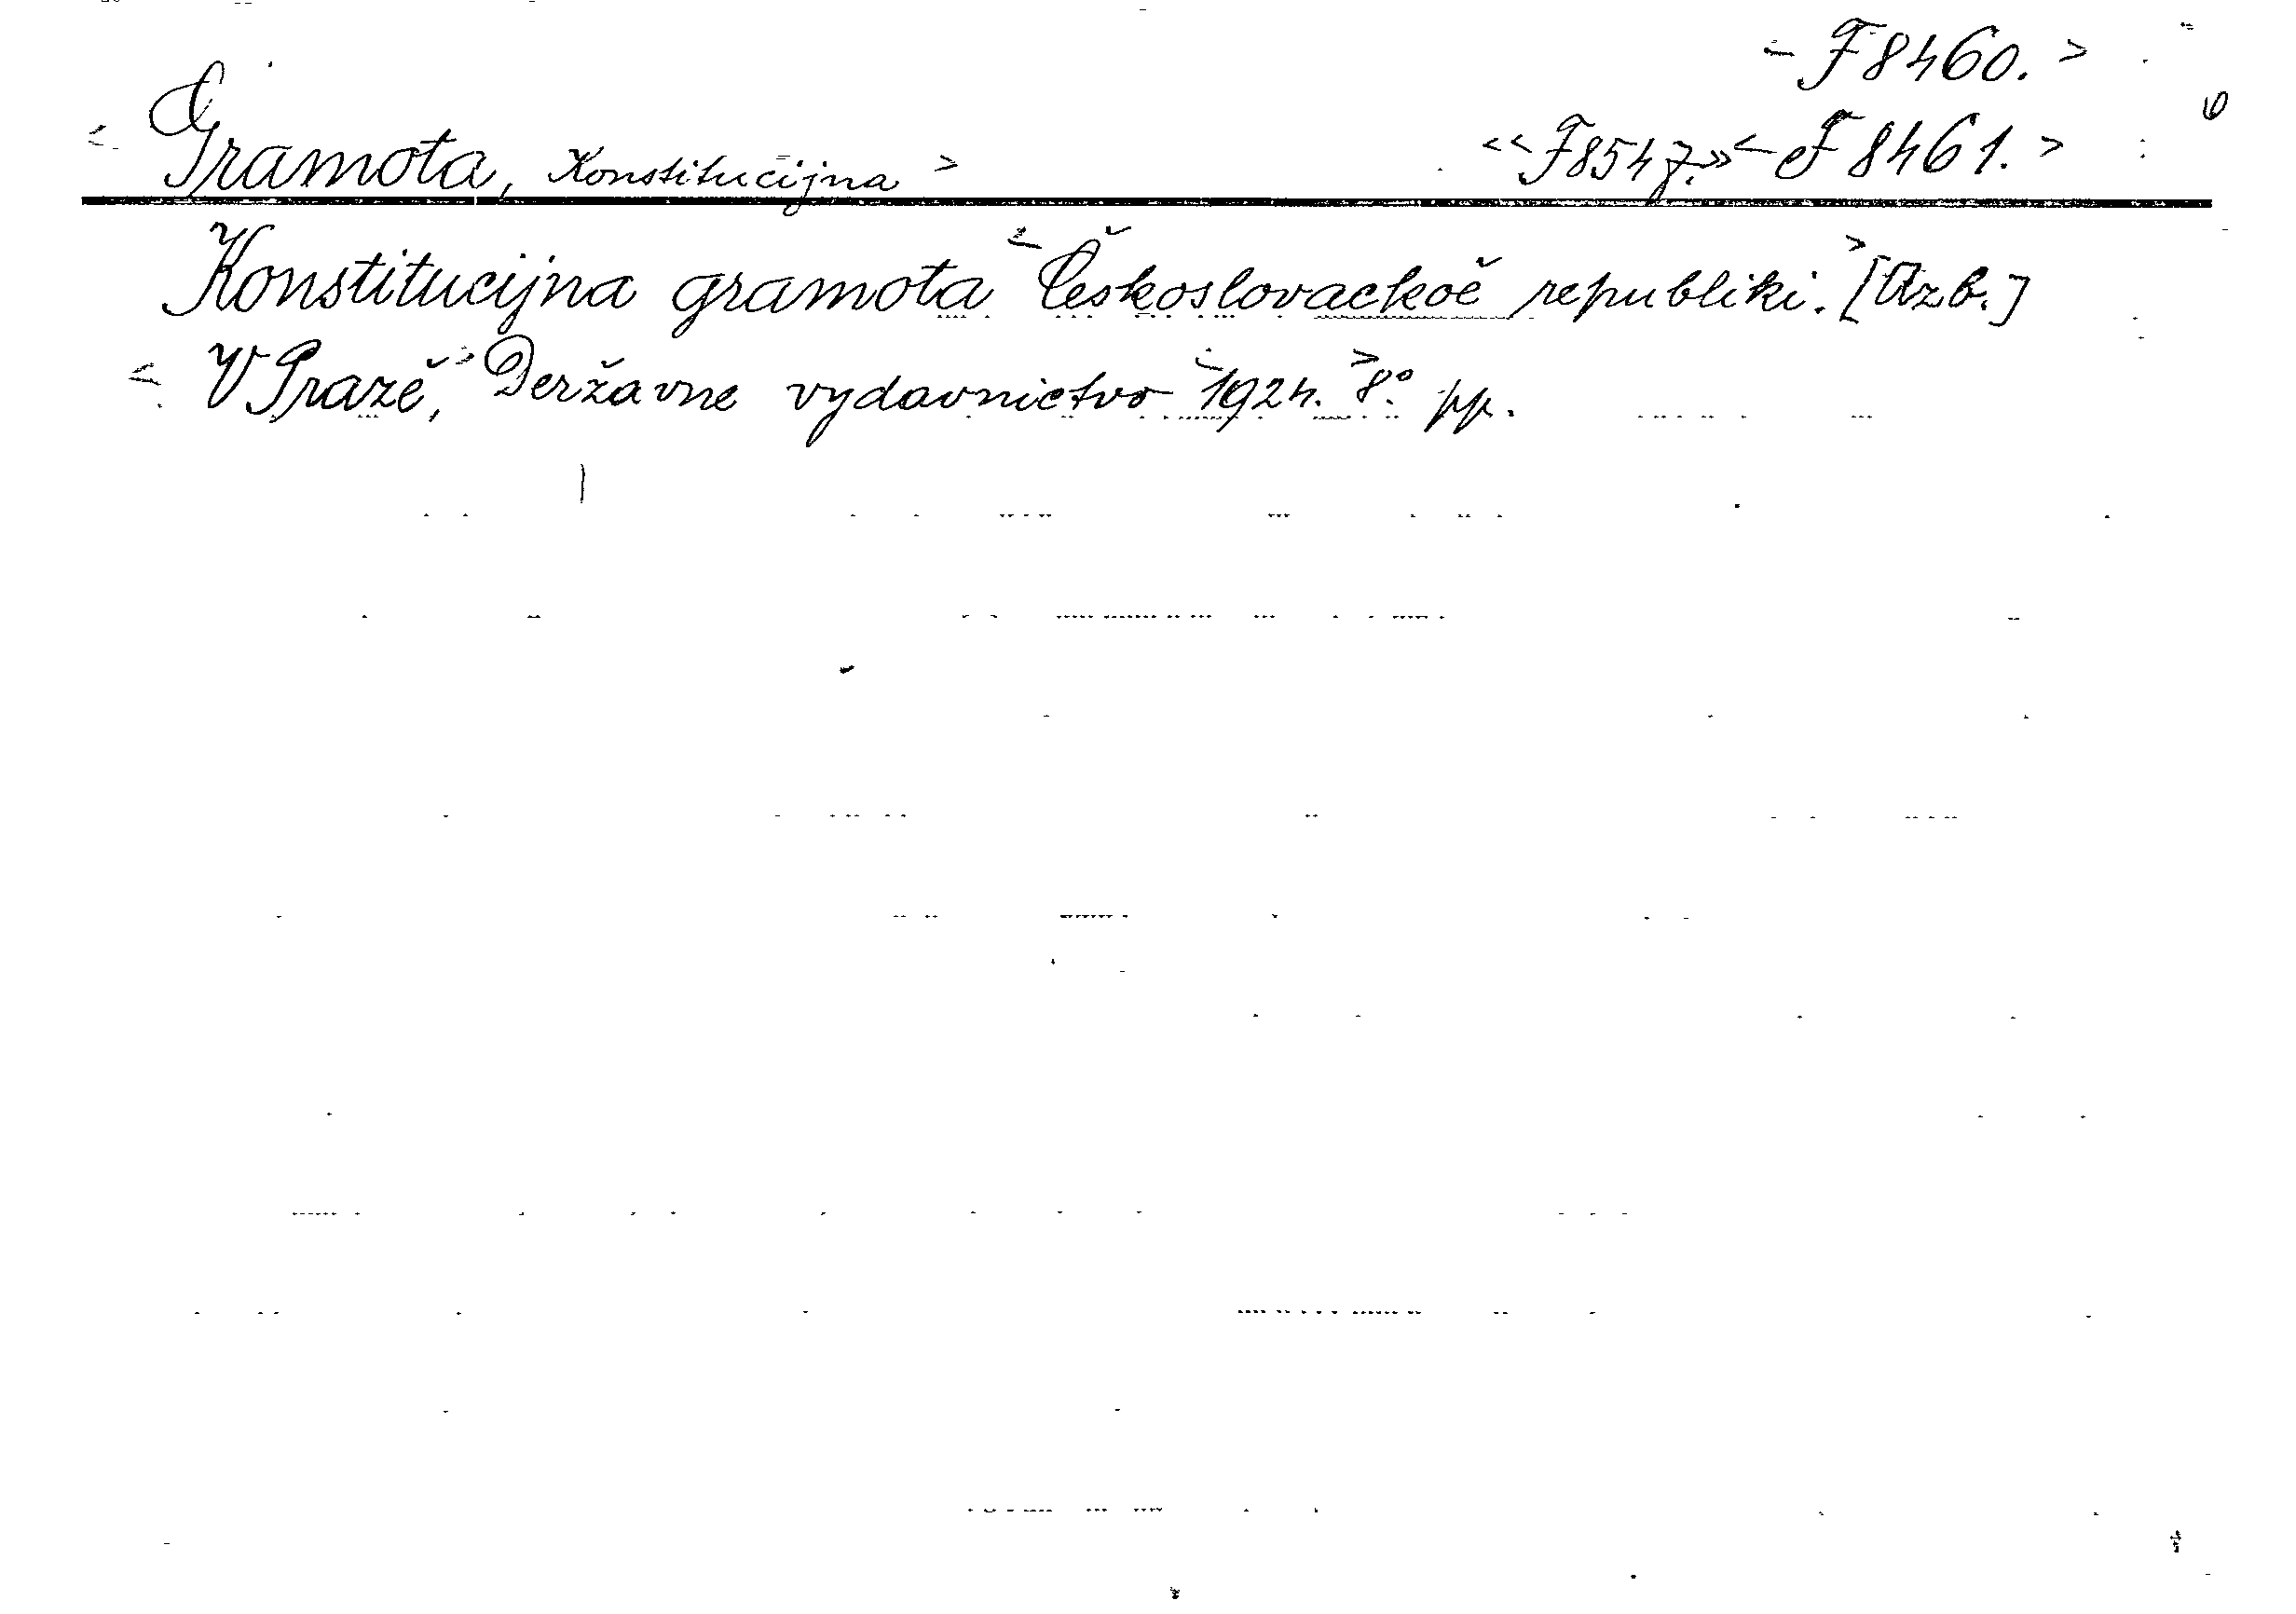 < F 8460. >
< Gramota, Konstitucijna > << F 8547. >> < F 8461. >
Konstitucijna gramota < Českoslovackoě republiki. > [Azb.]
< V Prazě, > Deržavne vydavnictvo < 1924. > 8.° pp.